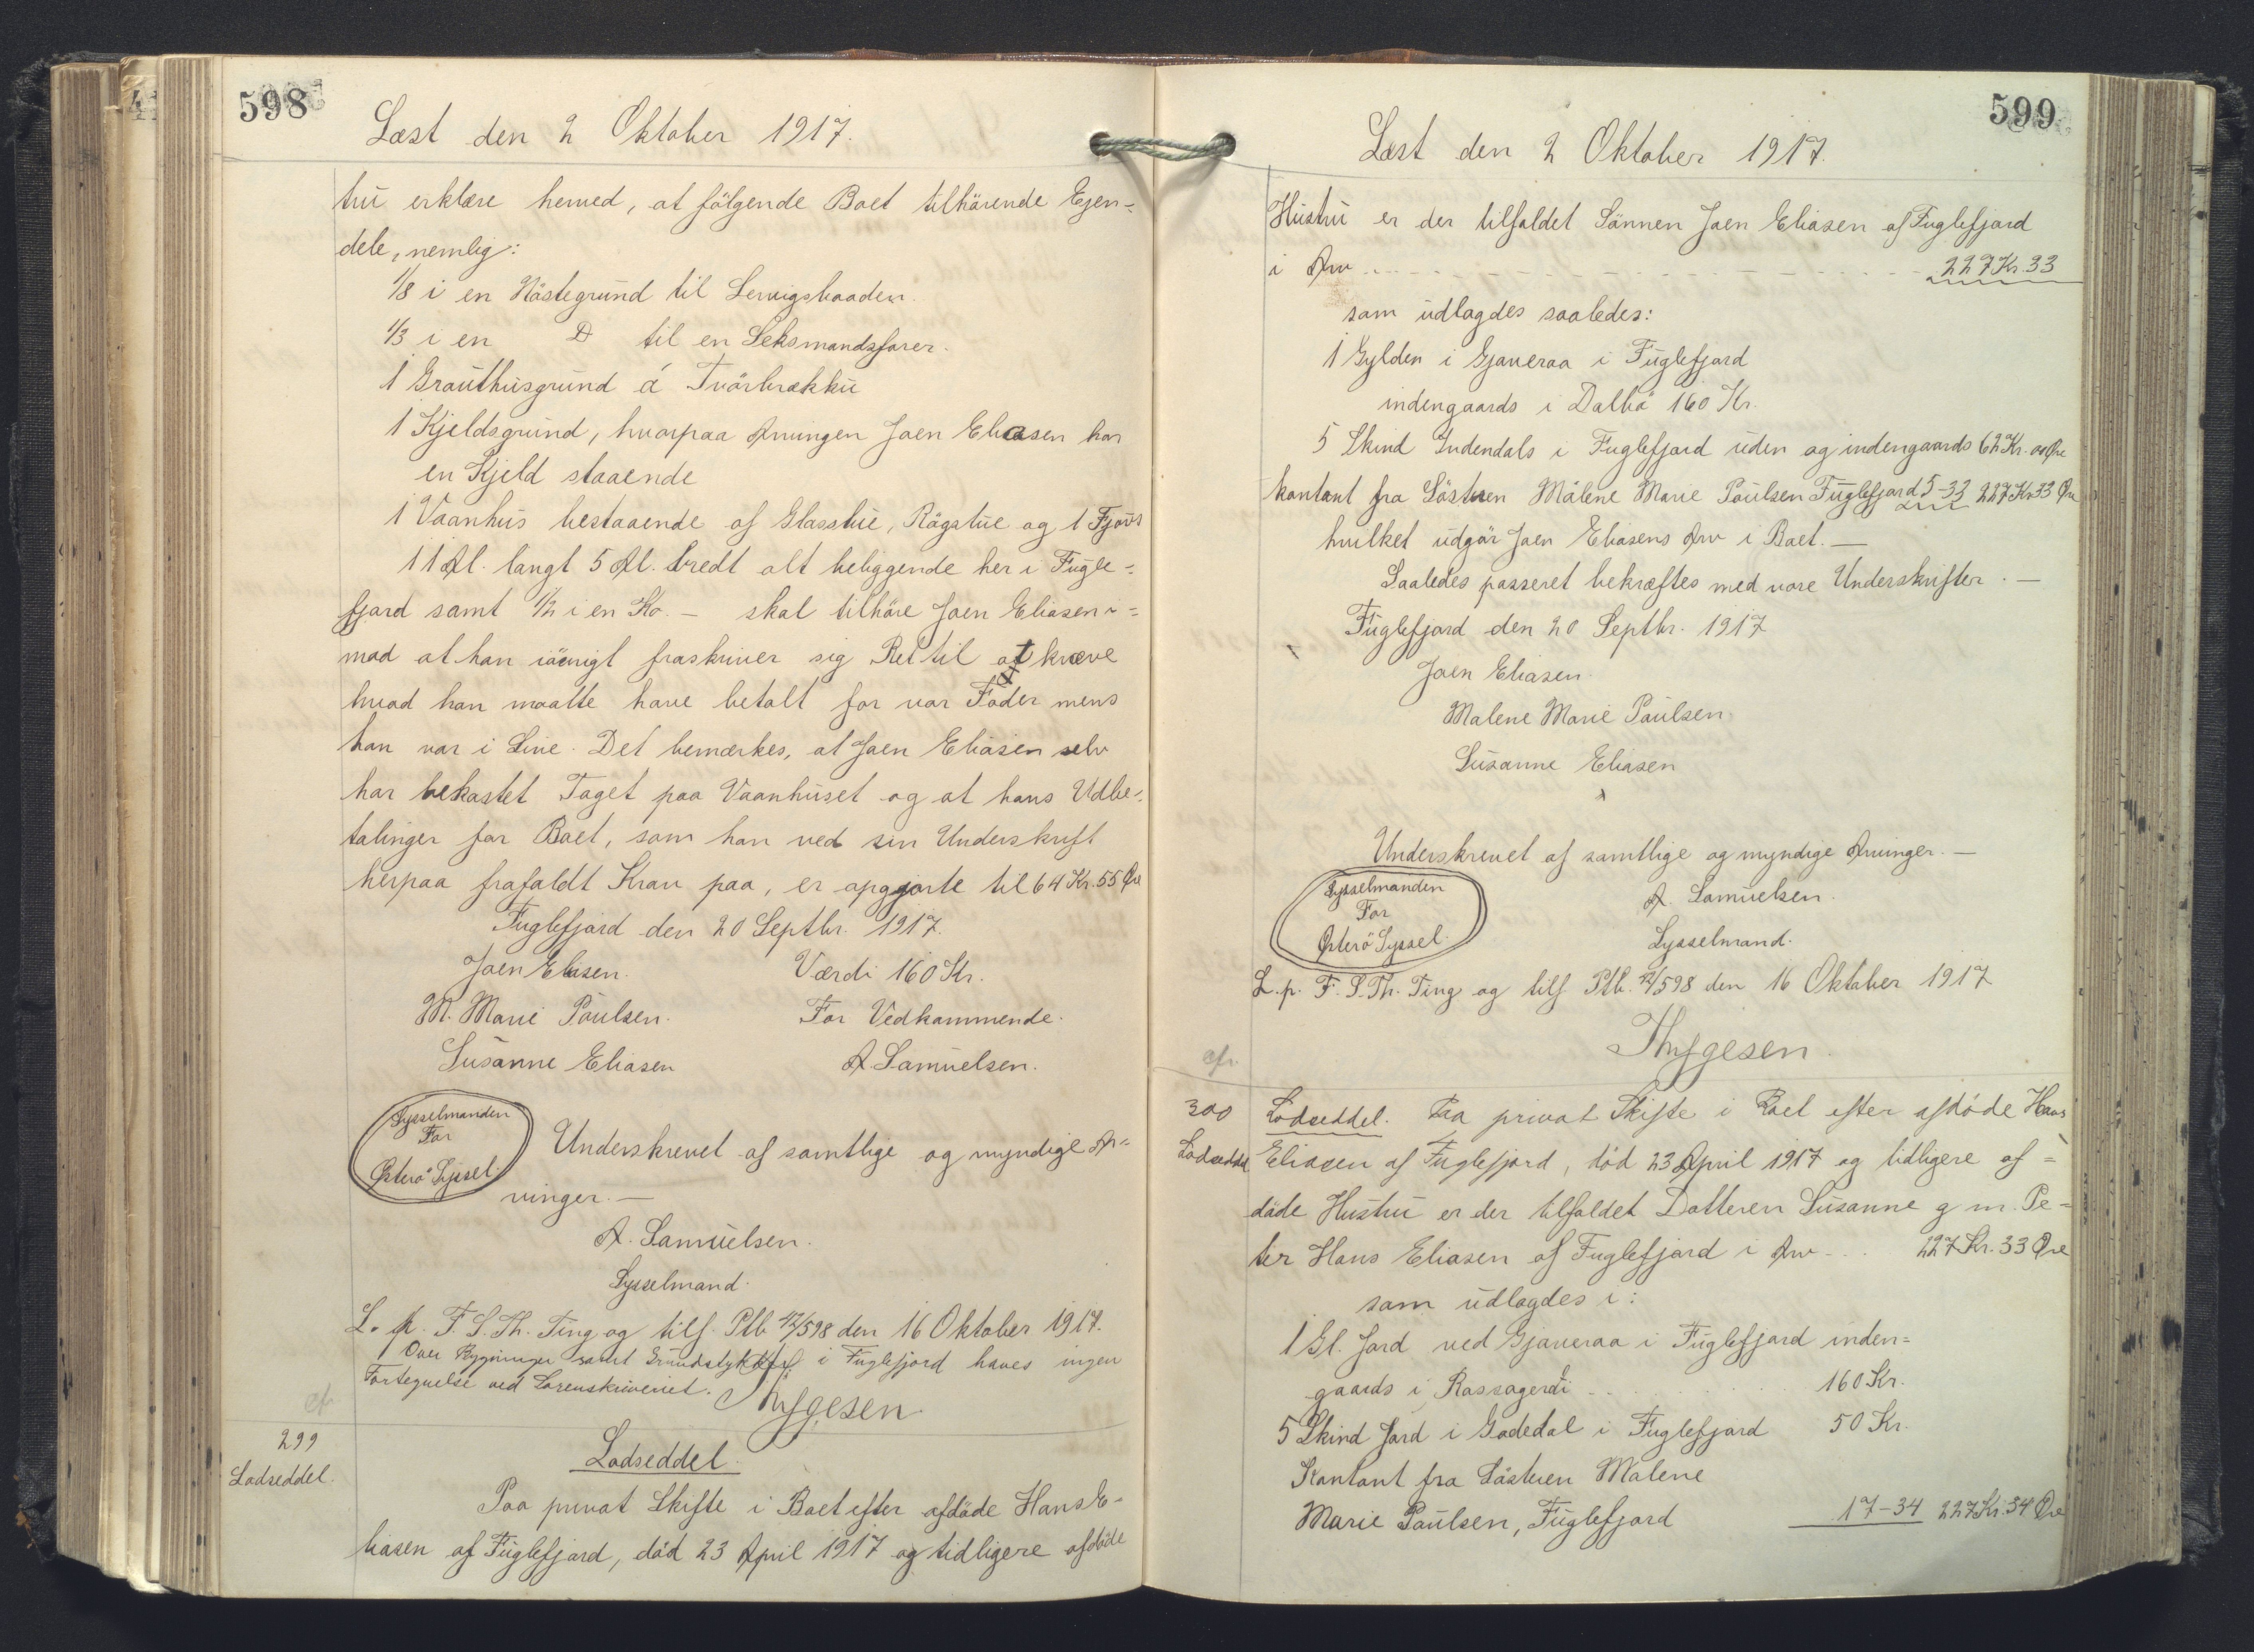 598
Læst den 2 Oktober 1917.
tru erklære herved, at følgende Boet tilhörende Ejen-
dele, nemlig:
1/8 i en Nöstegrund til Servigsbaaden.
1/3 i en D til en Seksmandsfarer.
1 Grouthusgrund á Tvörbrækku
1 Kjeldsgrund, hvorpaa Arvingen Joen Eliasen har
en Kjeld staaende
1 Vaanhus bestaaende af Glasstue, Rögstue og 1 Fjøs
11 Al. langt 5 Al. bredt alt beliggende her i Fugle-
fjord samt 1/2 i en Ko. - skal tilhöre Joen Eliasen i-
mod at han iövrigt fraskriver sig Ret til at kræve
hvad han maatte have betalt for vor Fader mens
han var i Live. Det bemærkes, at Joen Eliasen selv
har bekostet Taget paa Vaanhuset og at hans Udbe-
talinger for Boet, som han ved sin Underskrift
herpaa frafaldt Krav paa, er opgjorte til 64 Kr. 55 Øre
Fuglefjord den 20 Septbr. 1917.
Joen Eliasen. Værdi 160 Kr.
M. Marie Poulsen. For Vedkommende.
Susanne Eliasen A. Samuelsen.
Sysselmanden
For
Østerö Syssel.
Underskrevet af samtlige og myndige Ar-
vinger. -
A. Samuelsen.
Sysselmand.
L. p. F. S. Th. Ting og tilf. Ptb 42/598 den 16 Oktober 1917.
Over Bygninger samt Grundstykker i Fuglefjord haves ingen
Fortegnelse ved Sorenskriveriet.
Thygesen
cfr
299
Lodseddel.
Lodseddel.
Paa privat Skifte i Boet efter afdöde Hans E-
liasen af Fuglefjord, död 23 April 1917 og tidligere afdöde
599
Læst den 2 Oktober 1917.
Hustru er der tilfaldet Sönnen Joen Eliasen af Fuglefjord
i Arv 227 Kr. 33
som udlagdes saaledes:
1 Gylden i Gjaveraa i Fuglefjord
indengaards i Dalbö 160 Kr.
5 Skind Indendals i Fuglefjord uden og indengaards 62 Kr. 00 Øre
kontant fra Söstren Malene Marie Poulsen Fuglefjord 5-33 227 Kr 33 Øre
hvilket udgör Joen Eliasens Arv i Boet. -
Saaledes passeret bekræftes med vore Underskrifter. -
Fuglefjord den 20 Septbr. 1917
Joen Eliasen.
Malene Marie Poulsen
Susanne Eliasen
Underskrevet af samtlige og myndige Arvinger. -
Sysselmanden
For
Østerö Syssel.
A. Samuelsen.
Sysselmand.
L. p. F. S. Th. Ting og tilf Ptb. 42/598 den 16 Oktober 1917
Thygesen.
cfr.
300
Lodseddel
Lodseddel. Paa privat Skifte i Boet efter afdöde Hans
Eliasen af Fuglefjord, död 23 April 1917 og tidligere af-
döde Hustru er der tilfaldet Datteren Susanne g m. Pe-
ter Hans Eliasen af Fuglefjord i Arv 227 Kr. 33 Øre
som udlagdes i:
1 Gl. Jord ved Gjaveraa i Fuglefjord inden-
gaards i Rossagerdi 160 Kr.
5 Skind Jord i Godedal i Fuglefjord 50 Kr.
Kontant fra Söstren Malene
Marie Poulsen, Fuglefjord 17-34 227 Kr. 34 Øre